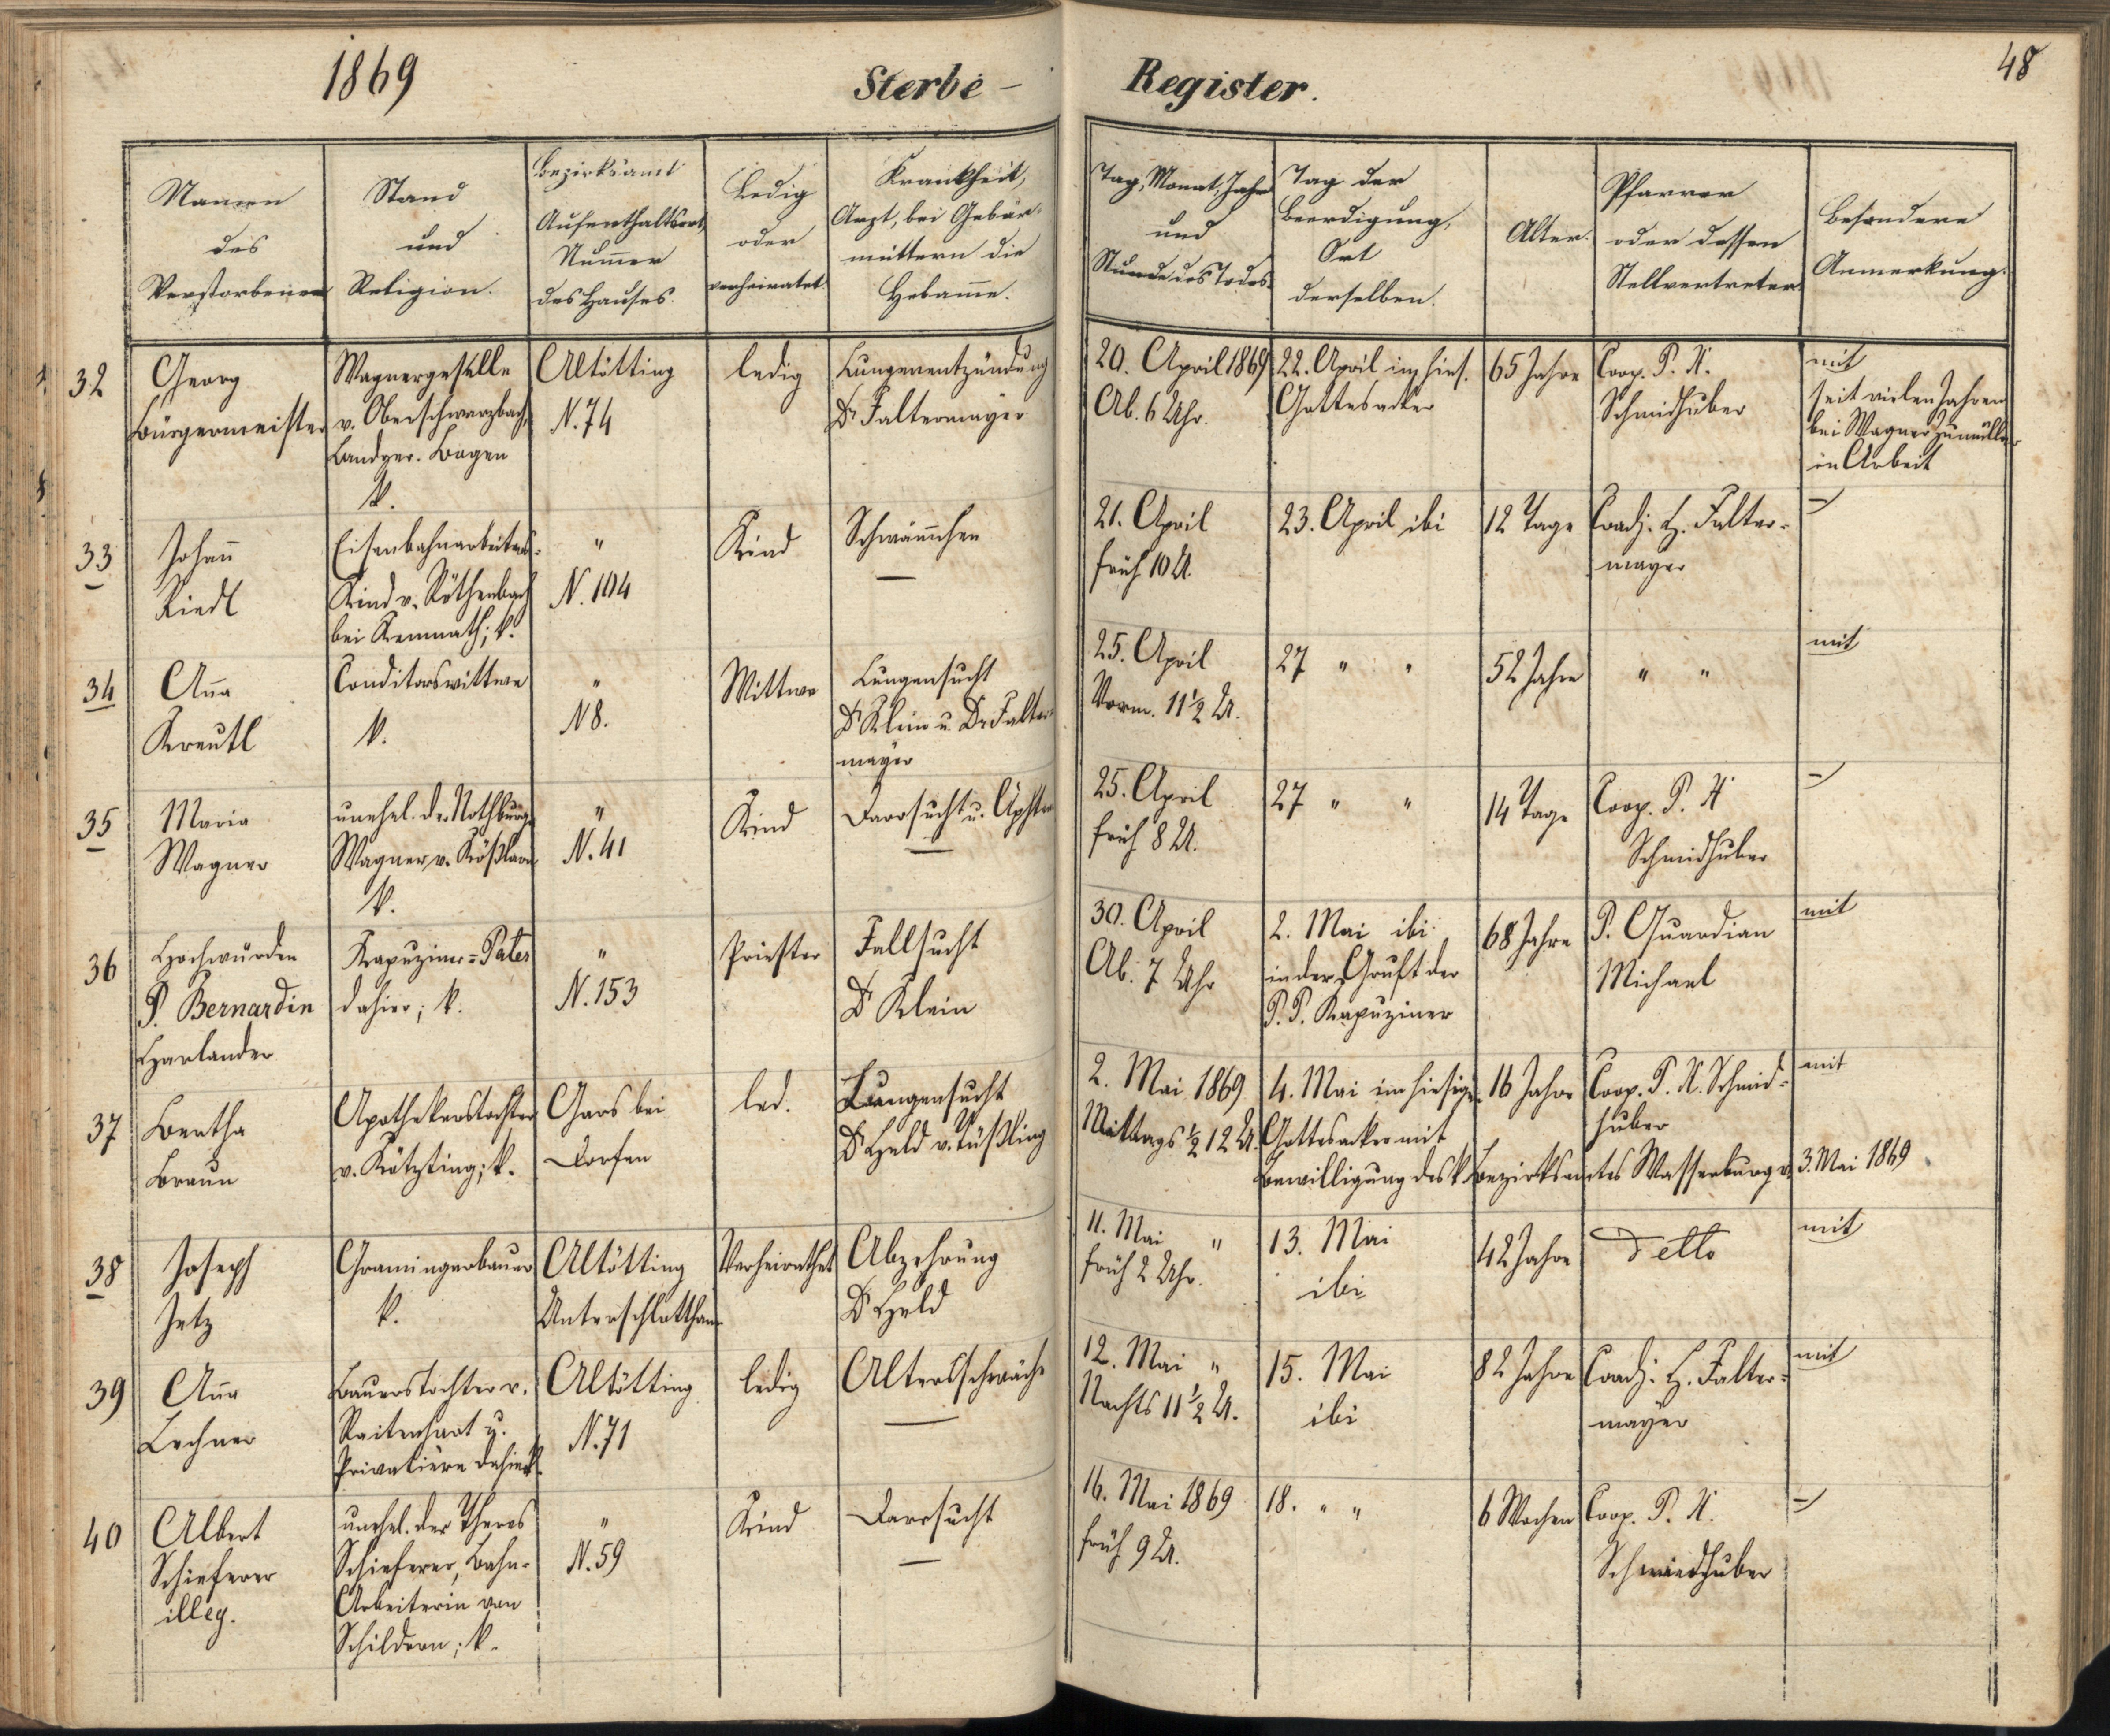 1869
Sterbe-
Register.
48
Namen des Verstorbenen
Stand und Religion.
Bezirksamt Aufenthaltsort, Num̄er des Hauses.
Ledig oder verheiratet
Krankheit, Arzt, bei Gebärmüttern die Hebam̄e.
Tag, Monat, Jahr und Stunde des Todes.
Tag der Beerdigung, Ort derselben.
Alter.
Pfarrer oder dessen Stellvertreter.
Besondere Anmerkung.
32
Georg
Bürgermeister
Wagnergeselle
v. Oberschwarzbach,
Landger. Bogen
k.
Altötting
N. 74
ledig
Lungenentzündung
Dr Faltermayer
20. April 1869
Ab. 6 Uhr.
22. April im hies.
Gottesacker
65 Jahre
Coop. P. N.
Schmidhuber
mit
seit vielen Jahren
bei Wagner
in Arbeit
33
Johan̄
Riedl
Eisenbahnarbeiters-
Kind v. Röthenbach
bei Kemnath; k.
"
N. 104
Kind
Schwäm̄chen
—
21. April
früh 10 U.
23. April ibi
12 Tage
Coadj. H. Falter-
mayer
—
34
An̄a
Kreutl
Conditorswittwe
k.
"
N 8.
Wittwe
Lungensucht
Dr Klein u. Dr Falter-
mayer
25. April
Vorm. 11 1/2 U.
27 " "
52 Jahre
" "
mit
35
Maria
Wagner
unehel. der Nothburga
Wagner v. Kößlarn
k.
"
N. 41
Kind
Darrsucht u. Aphten
—
25. April
früh 8 U.
27 " "
14 Tage
Coop. P. N
Schmidhuber
—
36
Hochwürden
P. Bernardin
Harlander
Kapuziner-Pater
dahier; k.
"
N. 153
Priester
Fallsucht
Dr Klein
30. April
Ab. 7 Uhr
2. Mai ibi
in der Gruft der
P. P. Kapuziner
68 Jahre
P. Guardian
Michael
mit
37
Bertha
Braun
Apothekerstochter
v. Kötzting; k.
Gars bei
Dorfen
led.
Lungensucht
Dr Held v. Tüßling
2. Mai 1869
Mittags 1/2 12 U.
4. Mai im hiesigen
Gottesacker mit
Bewilligung des k. Bezirksamtes Wasserburg v. 3. Mai 1869
16 Jahre
Coop. P. N. Schmid-
huber
mit
38
Joseph
Jetz
Gramingerbauer
k.
Altötting
Unterschlottham
Verheirathet
Abzehrung
Dr Held
11. Mai "
früh 2 Uhr.
13. Mai
ibi
42 Jahre
Detto
mit
39
An̄a
Lechner
Bauerstochter v.
Raitenhart u.
Privatière dahier k.
Altötting
N. 71
ledig
Altersschwäche
—
12. Mai "
Nachts 11 1/2 U.
15. Mai
ibi
82 Jahre
Coadj. H. Falter-
mayer
mit
40
Albert
Schieferer
illeg.
unehel. der Theres
Schieferer, Bahn-
Arbeiterin von
Schildorn; k.
"
N. 59
Kind
Darrsucht
—
16. Mai 1869
früh 9 U.
18. " "
6 Wochen
Coop. P. N.
Schmidhuber
—